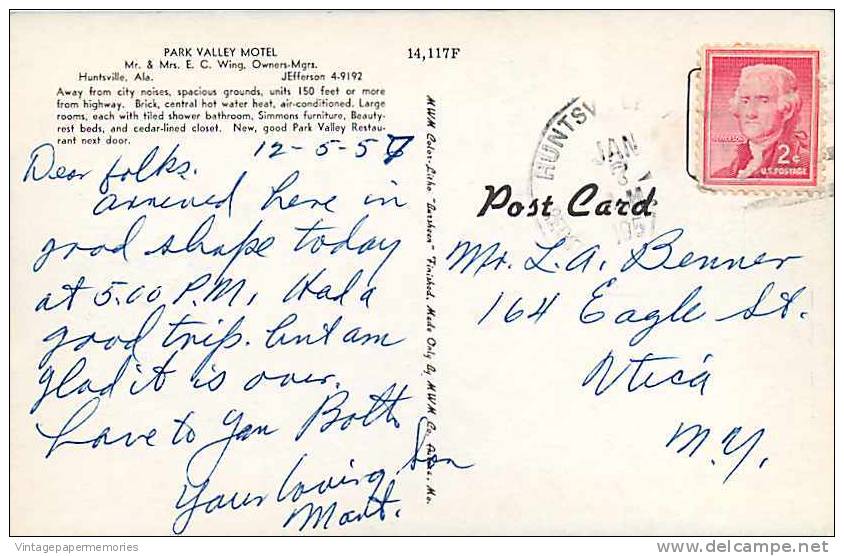 PARK VALLEY MOTEL
Mr. & Mrs. E. C. Wing, Owners-Mgrs.
Huntsville, Ala. JEfferson 4-9192
Away from city noises, spacious grounds, units 150 feet or more
from highway. Brick, central hot water heat, air-conditioned. Large
rooms, each with tiled shower bathroom, Simmons furniture, Beauty-
rest beds, and cedar-lined closet. New, good Park Valley Restau-
rant next door.
12-5-57
Dear folks.
arrived here in
good shape today
at 5.00 P.M. Had a
good trip. but am
glad it is over.
Love to You Both
Your loving Son
14,117F
MWM Color-Litho "Darsheen" Finished. Made Only By MWM Co. Aurora, Mo.
HUNTSVILLE
JAN
2¢
U.S. POSTAGE
Post Card
Mr. L.A. Benner
164 Eagle St.
Utica
N.Y.
Vintagepapermemories
delcampe.net